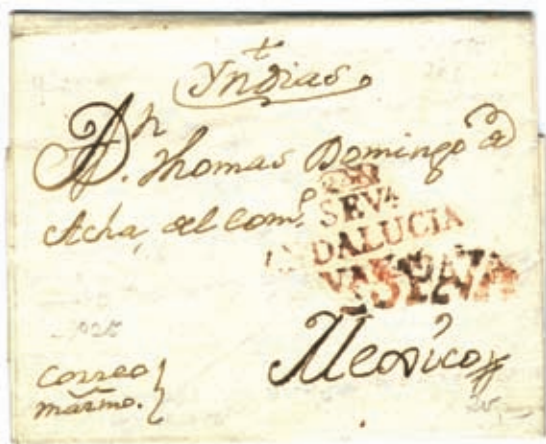 Yndias
A Dn. Thomas Domingo de
Acha, del Comº.
SEVª
ANDALUCIA
Mexico
Correo
marmo.